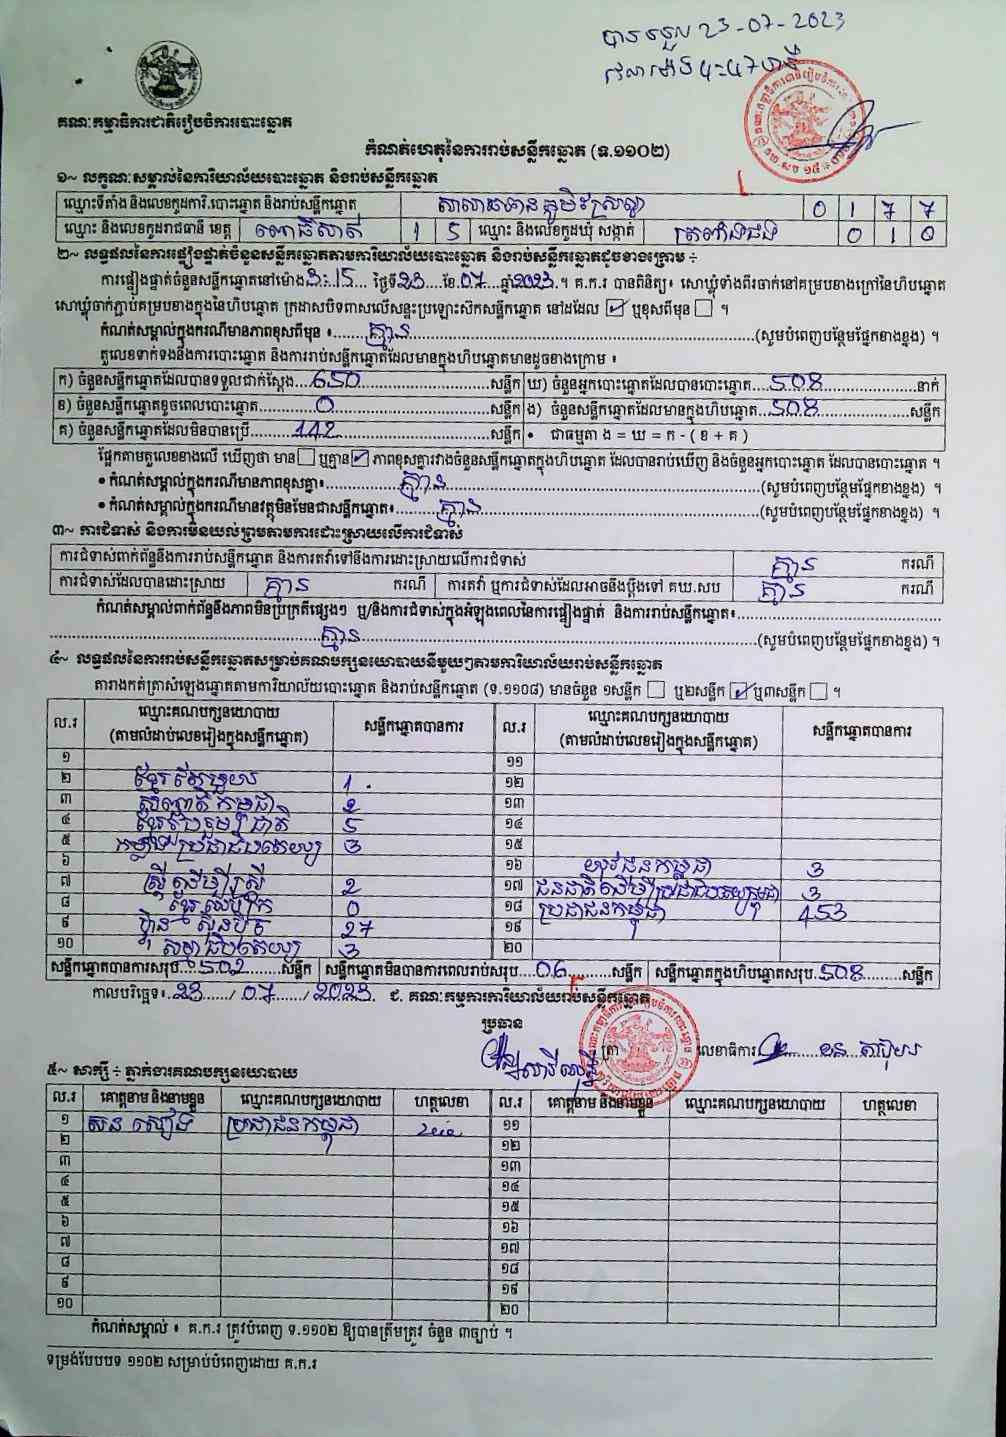 បានទទួល 23-07-2023
វេលាម៉ោង 4:47 នាទី
គណៈកម្មាធិការជាតិរៀបចំការបោះឆ្នោត
កំណត់ហេតុនៃការរាប់សន្លឹកឆ្នោត (ទ.១១០២)
១~ លក្ខណៈសម្គាល់នៃការិយាល័យបោះឆ្នោត និងរាប់សន្លឹកឆ្នោត
ឈ្មោះទីតាំង និងលេខកូដការិ.បោះឆ្នោត និងរាប់សន្លឹកឆ្នោត សាលាឆទាន ភូមិ 0 1 7 7
ឈ្មោះ និងលេខកូដរាជធានី ខេត្ត ពោធិ៍សាត់ 1 5 ឈ្មោះ និងលេខកូដឃុំ សង្កាត់ ត្រពាំងជង 0 1 0
២~ លទ្ធផលនៃការផ្ទៀងផ្ទាត់ចំនួនសន្លឹកឆ្នោតតាមការិយាល័យបោះឆ្នោត និងរាប់សន្លឹកឆ្នោតដូចខាងក្រោម ÷
ការផ្ទៀងផ្ទាត់ចំនួនសន្លឹកឆ្នោតនៅម៉ោង 3:15 ថ្ងៃទី 23 ខែ 07 ឆ្នាំ 2023 ។ គ.ក.រ បានពិនិត្យ៖ សោឃ្មុំទាំងពីរចាក់នៅគម្របខាងក្រៅនៃហិបឆ្នោត
សោឃ្មុំចាក់ភ្ជាប់គម្របខាងក្នុងនៃហិបឆ្នោត ក្រដាសបិទពាសលើសន្ទះប្រឡោះស៊កសន្លឹកឆ្នោត នៅដដែល ☑ ឬខុសពីមុន ☐ ។
កំណត់សម្គាល់ក្នុងករណីមានភាពខុសពីមុន ៖ គ្មាន (សូមបំពេញបន្ថែមផ្នែកខាងខ្នង) ។
តួលេខទាក់ទងនឹងការបោះឆ្នោត និងការរាប់សន្លឹកឆ្នោតដែលមានក្នុងហិបឆ្នោតមានដូចខាងក្រោម ៖
ក) ចំនួនសន្លឹកឆ្នោតដែលបានទទួលជាក់ស្តែង 650 សន្លឹក ឃ) ចំនួនអ្នកបោះឆ្នោតដែលបានបោះឆ្នោត 508 នាក់
ខ) ចំនួនសន្លឹកឆ្នោតខូចពេលបោះឆ្នោត 0 សន្លឹក ង) ចំនួនសន្លឹកឆ្នោតដែលមានក្នុងហិបឆ្នោត 508 សន្លឹក
គ) ចំនួនសន្លឹកឆ្នោតដែលមិនបានប្រើ 142 សន្លឹក • ជាធម្មតា ង = ឃ = ក - ( ខ + គ )
ផ្អែកតាមតួលេខខាងលើ ឃើញថា មាន ☐ ឬគ្មាន ☑ ភាពខុសគ្នារវាងចំនួនសន្លឹកឆ្នោតក្នុងហិបឆ្នោត ដែលបានរាប់ឃើញ និងចំនួនអ្នកបោះឆ្នោត ដែលបានបោះឆ្នោត ។
• កំណត់សម្គាល់ក្នុងករណីមានភាពខុសគ្នា៖ គ្មាន (សូមបំពេញបន្ថែមផ្នែកខាងខ្នង) ។
• កំណត់សម្គាល់ក្នុងករណីមានវត្ថុមិនមែនជាសន្លឹកឆ្នោត៖ គ្មាន (សូមបំពេញបន្ថែមផ្នែកខាងខ្នង) ។
៣~ ការជំទាស់ និងការមិនយល់ព្រមតាមការដោះស្រាយលើការជំទាស់
ការជំទាស់ពាក់ព័ន្ធនឹងការរាប់សន្លឹកឆ្នោត និងការតវ៉ាទៅនឹងការដោះស្រាយលើការជំទាស់ គ្មាន ករណី
ការជំទាស់ដែលបានដោះស្រាយ គ្មាន ករណី ការតវ៉ា ឬការជំទាស់ដែលអាចនឹងប្តឹងទៅ គឃ.សប គ្មាន ករណី
កំណត់សម្គាល់ពាក់ព័ន្ធនឹងភាពមិនប្រក្រតីផ្សេងៗ ឬ/និងការជំទាស់ក្នុងអំឡុងពេលនៃការផ្ទៀងផ្ទាត់ និងការរាប់សន្លឹកឆ្នោត៖
គ្មាន (សូមបំពេញបន្ថែមផ្នែកខាងខ្នង) ។
៤~ លទ្ធផលនៃការរាប់សន្លឹកឆ្នោតសម្រាប់គណបក្សនយោបាយនីមួយៗតាមការិយាល័យរាប់សន្លឹកឆ្នោត
តារាងកត់ត្រាសំឡេងឆ្នោតតាមការិយាល័យបោះឆ្នោត និងរាប់សន្លឹកឆ្នោត (ទ.១១០៨) មានចំនួន ១សន្លឹក ☐ ឬ២សន្លឹក ☑ ឬ៣សន្លឹក ☐ ។
ល.រ ឈ្មោះគណបក្សនយោបាយ (តាមលំដាប់លេខរៀងក្នុងសន្លឹកឆ្នោត) សន្លឹកឆ្នោតបានការ ល.រ ឈ្មោះគណបក្សនយោបាយ (តាមលំដាប់លេខរៀងក្នុងសន្លឹកឆ្នោត) សន្លឹកឆ្នោតបានការ
១ ១១
២ ខ្មែរតែមួយ 1 ១២
៣ សញ្ជាតិកម្ពុជា 2 ១៣
៤ ខ្មែររួបរួមជាតិ 5 ១៤
៥ កម្លាំងប្រជាធិបតេយ្យ 3 ១៥
៦ ១៦ យុវជនកម្ពុជា 3
៧ ស្ត្រីដើម្បីស្ត្រី 2 ១៧ ជនជាតិដើមប្រជាធិបតេយ្យកម្ពុជា 3
៨ 0 ១៨ ប្រជាជនកម្ពុជា 453
៩ ហ៊្វុនស៊ិនប៉ិច 27 ១៩
១០ សម្ពន្ធ 3 ២០
សន្លឹកឆ្នោតបានការសរុប 502 សន្លឹក សន្លឹកឆ្នោតមិនបានការពេលរាប់សរុប 06 សន្លឹក សន្លឹកឆ្នោតក្នុងហិបឆ្នោតសរុប 508 សន្លឹក
កាលបរិច្ឆេទ៖ 23 / 07 / 2023 ជ. គណៈកម្មការការិយាល័យរាប់សន្លឹកឆ្នោត
ប្រធាន
ត្រា លេខាធិការ
៥~ សាក្សី ÷ ភ្នាក់ងារគណបក្សនយោបាយ
ល.រ គោត្តនាម និងនាមខ្លួន ឈ្មោះគណបក្សនយោបាយ ហត្ថលេខា ល.រ គោត្តនាម និងនាមខ្លួន ឈ្មោះគណបក្សនយោបាយ ហត្ថលេខា
១ សន សឿន ប្រជាជនកម្ពុជា ១១
២ ១២
៣ ១៣
៤ ១៤
៥ ១៥
៦ ១៦
៧ ១៧
៨ ១៨
៩ ១៩
១០ ២០
កំណត់សម្គាល់ ៖ គ.ក.រ ត្រូវបំពេញ ទ.១១០២ ឱ្យបានត្រឹមត្រូវ ចំនួន ៣ច្បាប់ ។
ទម្រង់បែបបទ ១១០២ សម្រាប់បំពេញដោយ គ.ក.រ